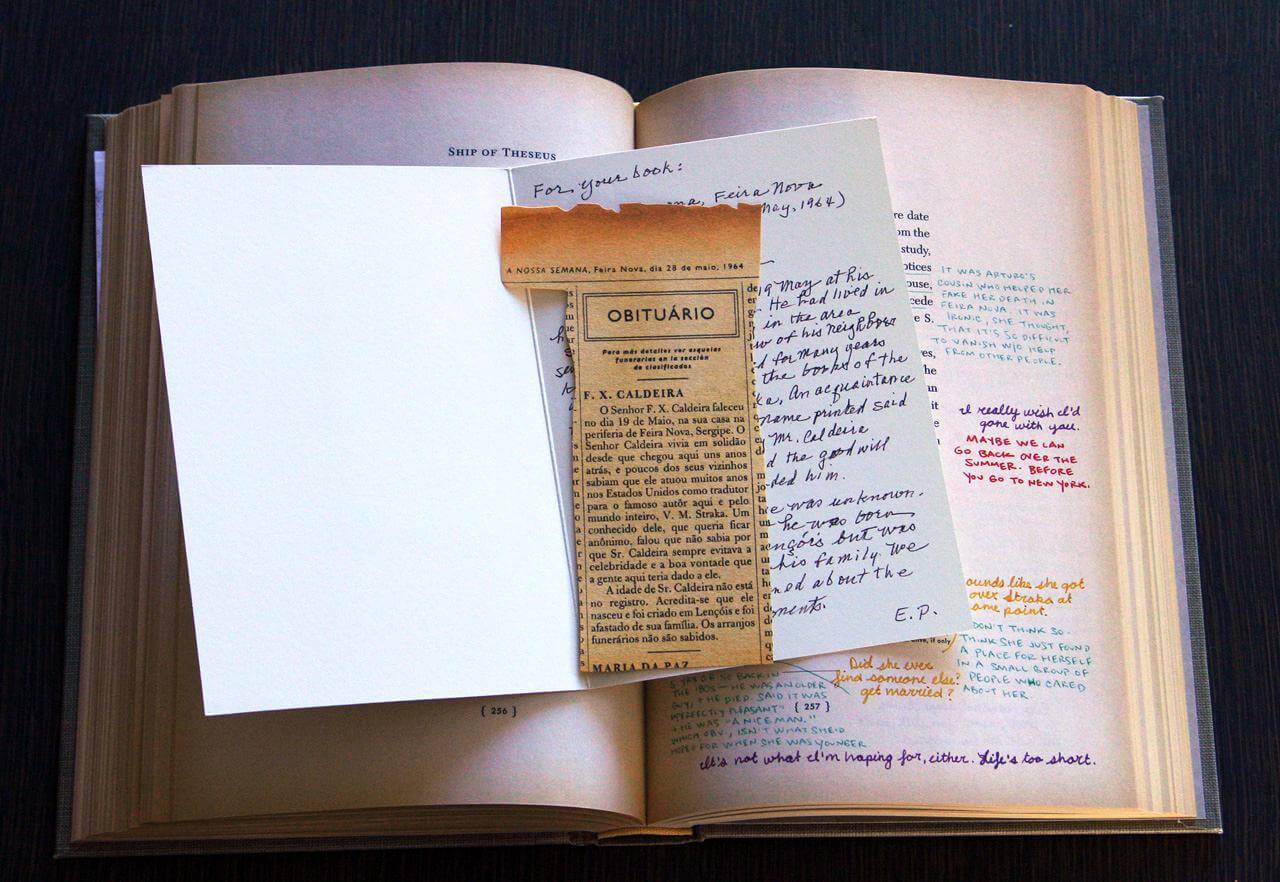 SHIP OF THESEUS
For your book:
Feira Nova
May, 1964)
A NOSSA SEMANA, Feira Nova, dia 28 de maio, 1964
OBITUÁRIO
Para más detalles ver esquelas
funerarias en la sección
de clasificados
F. X. CALDEIRA
O Senhor F. X. Caldeira faleceu
no dia 19 de Maio, na sua casa na
periferia de Feira Nova, Sergipe. O
Senhor Caldeira vivia em solidão
desde que chegou aqui uns anos
atrás, e poucos dos seus vizinhos
sabiam que ele atuou muitos anos
nos Estados Unidos como tradutor
para o famoso autôr aqui e pelo
mundo inteiro, V. M. Straka. Um
conhecido dele, que queria ficar
anônimo, falou que não sabia por
que Sr. Caldeira sempre evitava a
celebridade e a boa vontade que
a gente aqui teria dado a ele.
A idade de Sr. Caldeira não está
no registro. Acredita-se que ele
nasceu e foi criado em Lençóis e foi
afastado de sua família. Os arranjos
funerários não são sabidos.
MARIA DA PAZ
19 May at his
He had lived in
in the area
of his neighbors
for many years
the books of the
An acquaintance
name printed said
Mr. Caldeira
the good will
him.
was unknown.
he was born
but was
his family. We
about the
E.P.
re date
om the
study,
otices
ouse,
cede
e S.
ves,
he
un
it
IT WAS ARTURO'S
COUSIN WHO HELPED HER
FAKE HER DEATH IN
FEIRA NOVA. IT WAS
IRONIC, SHE THOUGHT,
THAT IT'S SO DIFFICULT
TO VANISH W/O HELP
FROM OTHER PEOPLE.
I really wish I'd
gone with you.
MAYBE WE CAN
GO BACK OVER THE
SUMMER. BEFORE
YOU GO TO NEW YORK.
ounds like she got
over Straka at
ome point.
DON'T THINK SO.
THINK SHE JUST FOUND
A PLACE FOR HERSELF
IN A SMALL GROUP OF
PEOPLE WHO CARED
ABOUT HER.
if only
Did she ever
find someone else?
get married?
OR SO BACK IN
THE '80s — HE WAS AN OLDER
GUY, & HE DIED. SAID IT WAS
"PERFECTLY PLEASANT"
& HE WAS "A NICE MAN."
WHICH OBV. ISN'T WHAT SHE'D
HOPED FOR WHEN SHE WAS YOUNGER
It's not what I'm hoping for, either. Life's too short.
{ 256 }
{ 257 }